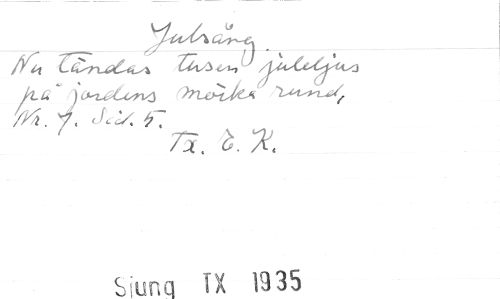 Julsång.
Nu tändas tusen juleljus
på jordens mörka rund,
Nr. 7. Sid. 5.
Tx. E. K.
Sjung TX 1935